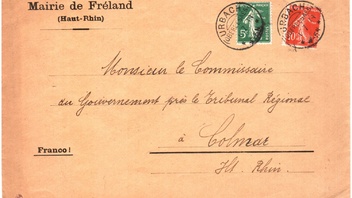 Mairie de Fréland
(Haut-Rhin)
URBACH
5c
10c
URBACH
Monsieur le Commissaire
du Gouvernement près le Tribunal Régional
à Colmar
Franco!
Ht. Rhin.